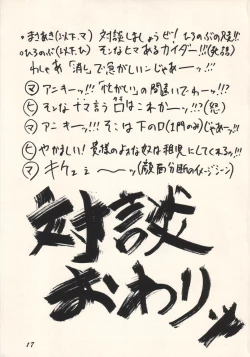 ・まさあき(以下、マ) 対談しましょうぜ! ひろのぶの兄貴!!
・ひろのぶ(以下、ひ) そんなヒマあるカイダー!!(死語)
わしゃあ「消し」で忙がしいンじゃあーッ!!!
マ アニキーッ!!!「忙がしい」の間違いでわーッ!!?
ヒ そんな寸言う口はこれかーッ!??(怒)
マ アニキーッ!!! そこは下の口(肛門のみ)じゃあーッ!!
ヒ やかましい! 貴様のような奴は相児にしてくれるッ!!!
マ キケェェ〜〜ッ(顔面分断のイメージシーン)
対談
おわり
17